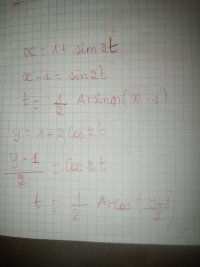 x = 1 + sin 2t
x - 1 = sin 2t
t = 1/2 Arsinon(x - 1)
y = 1 + 2 cos 2t
(y - 1)/2 = cos 2t
t = 1/2 Arcos((y - 1)/2)